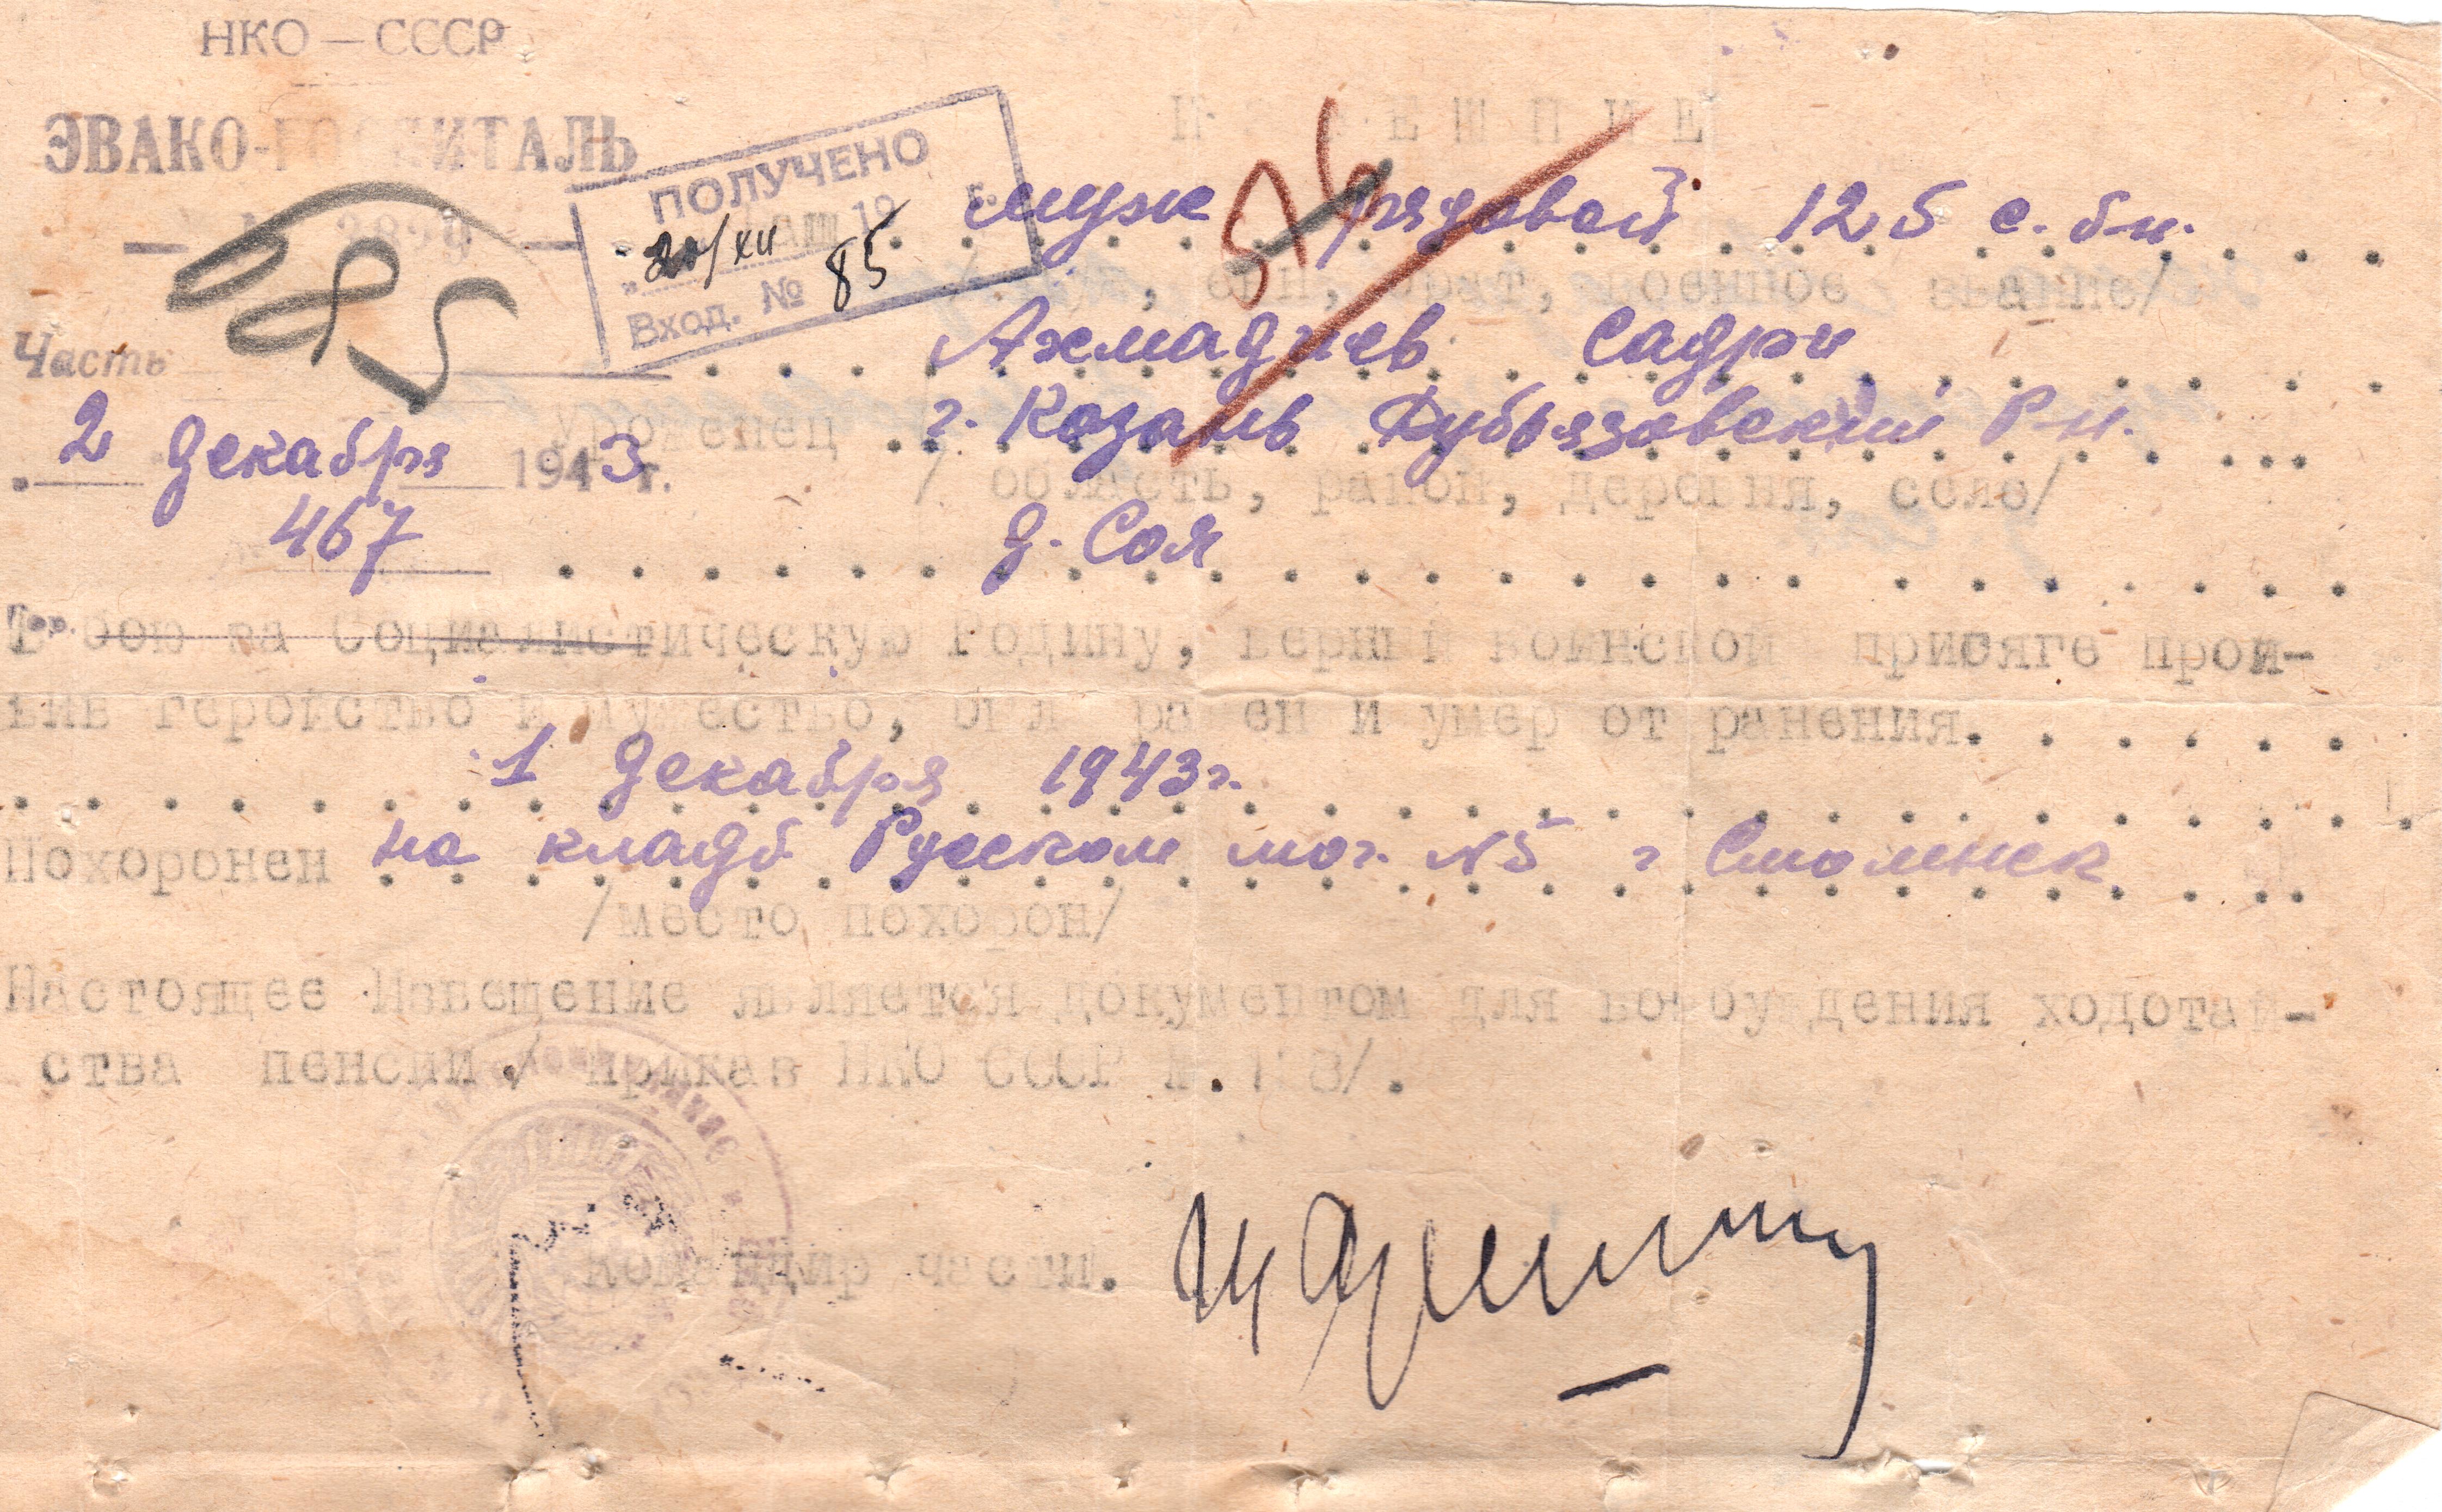 НКО — СССР
ЭВАКО-ГОСПИТАЛЬ
ПОЛУЧЕНО
20/XII 19 г.
Вход. № 85
муж рядовой 125 с. б-н.
брат, военное звание/
Часть
Ахмадиев Садри
2 декабря 1943 г.
уроженец г. Козань Дубьязовский Р-н.
/ область, район, деревня, село/
467
д. Соя
бою за Социалистическую Родину, верный воинской присяге проя-
вив геройство и мужество, был ранен и умер от ранения.
1 декабря 1943 г.
Похоронен на кладб Русском мог. N5 г Смоленск.
/место похорон/
Настоящее Извещение является документом для возбуждения ходотай-
ства пенсии / приказ НКО СССР
Командир части.